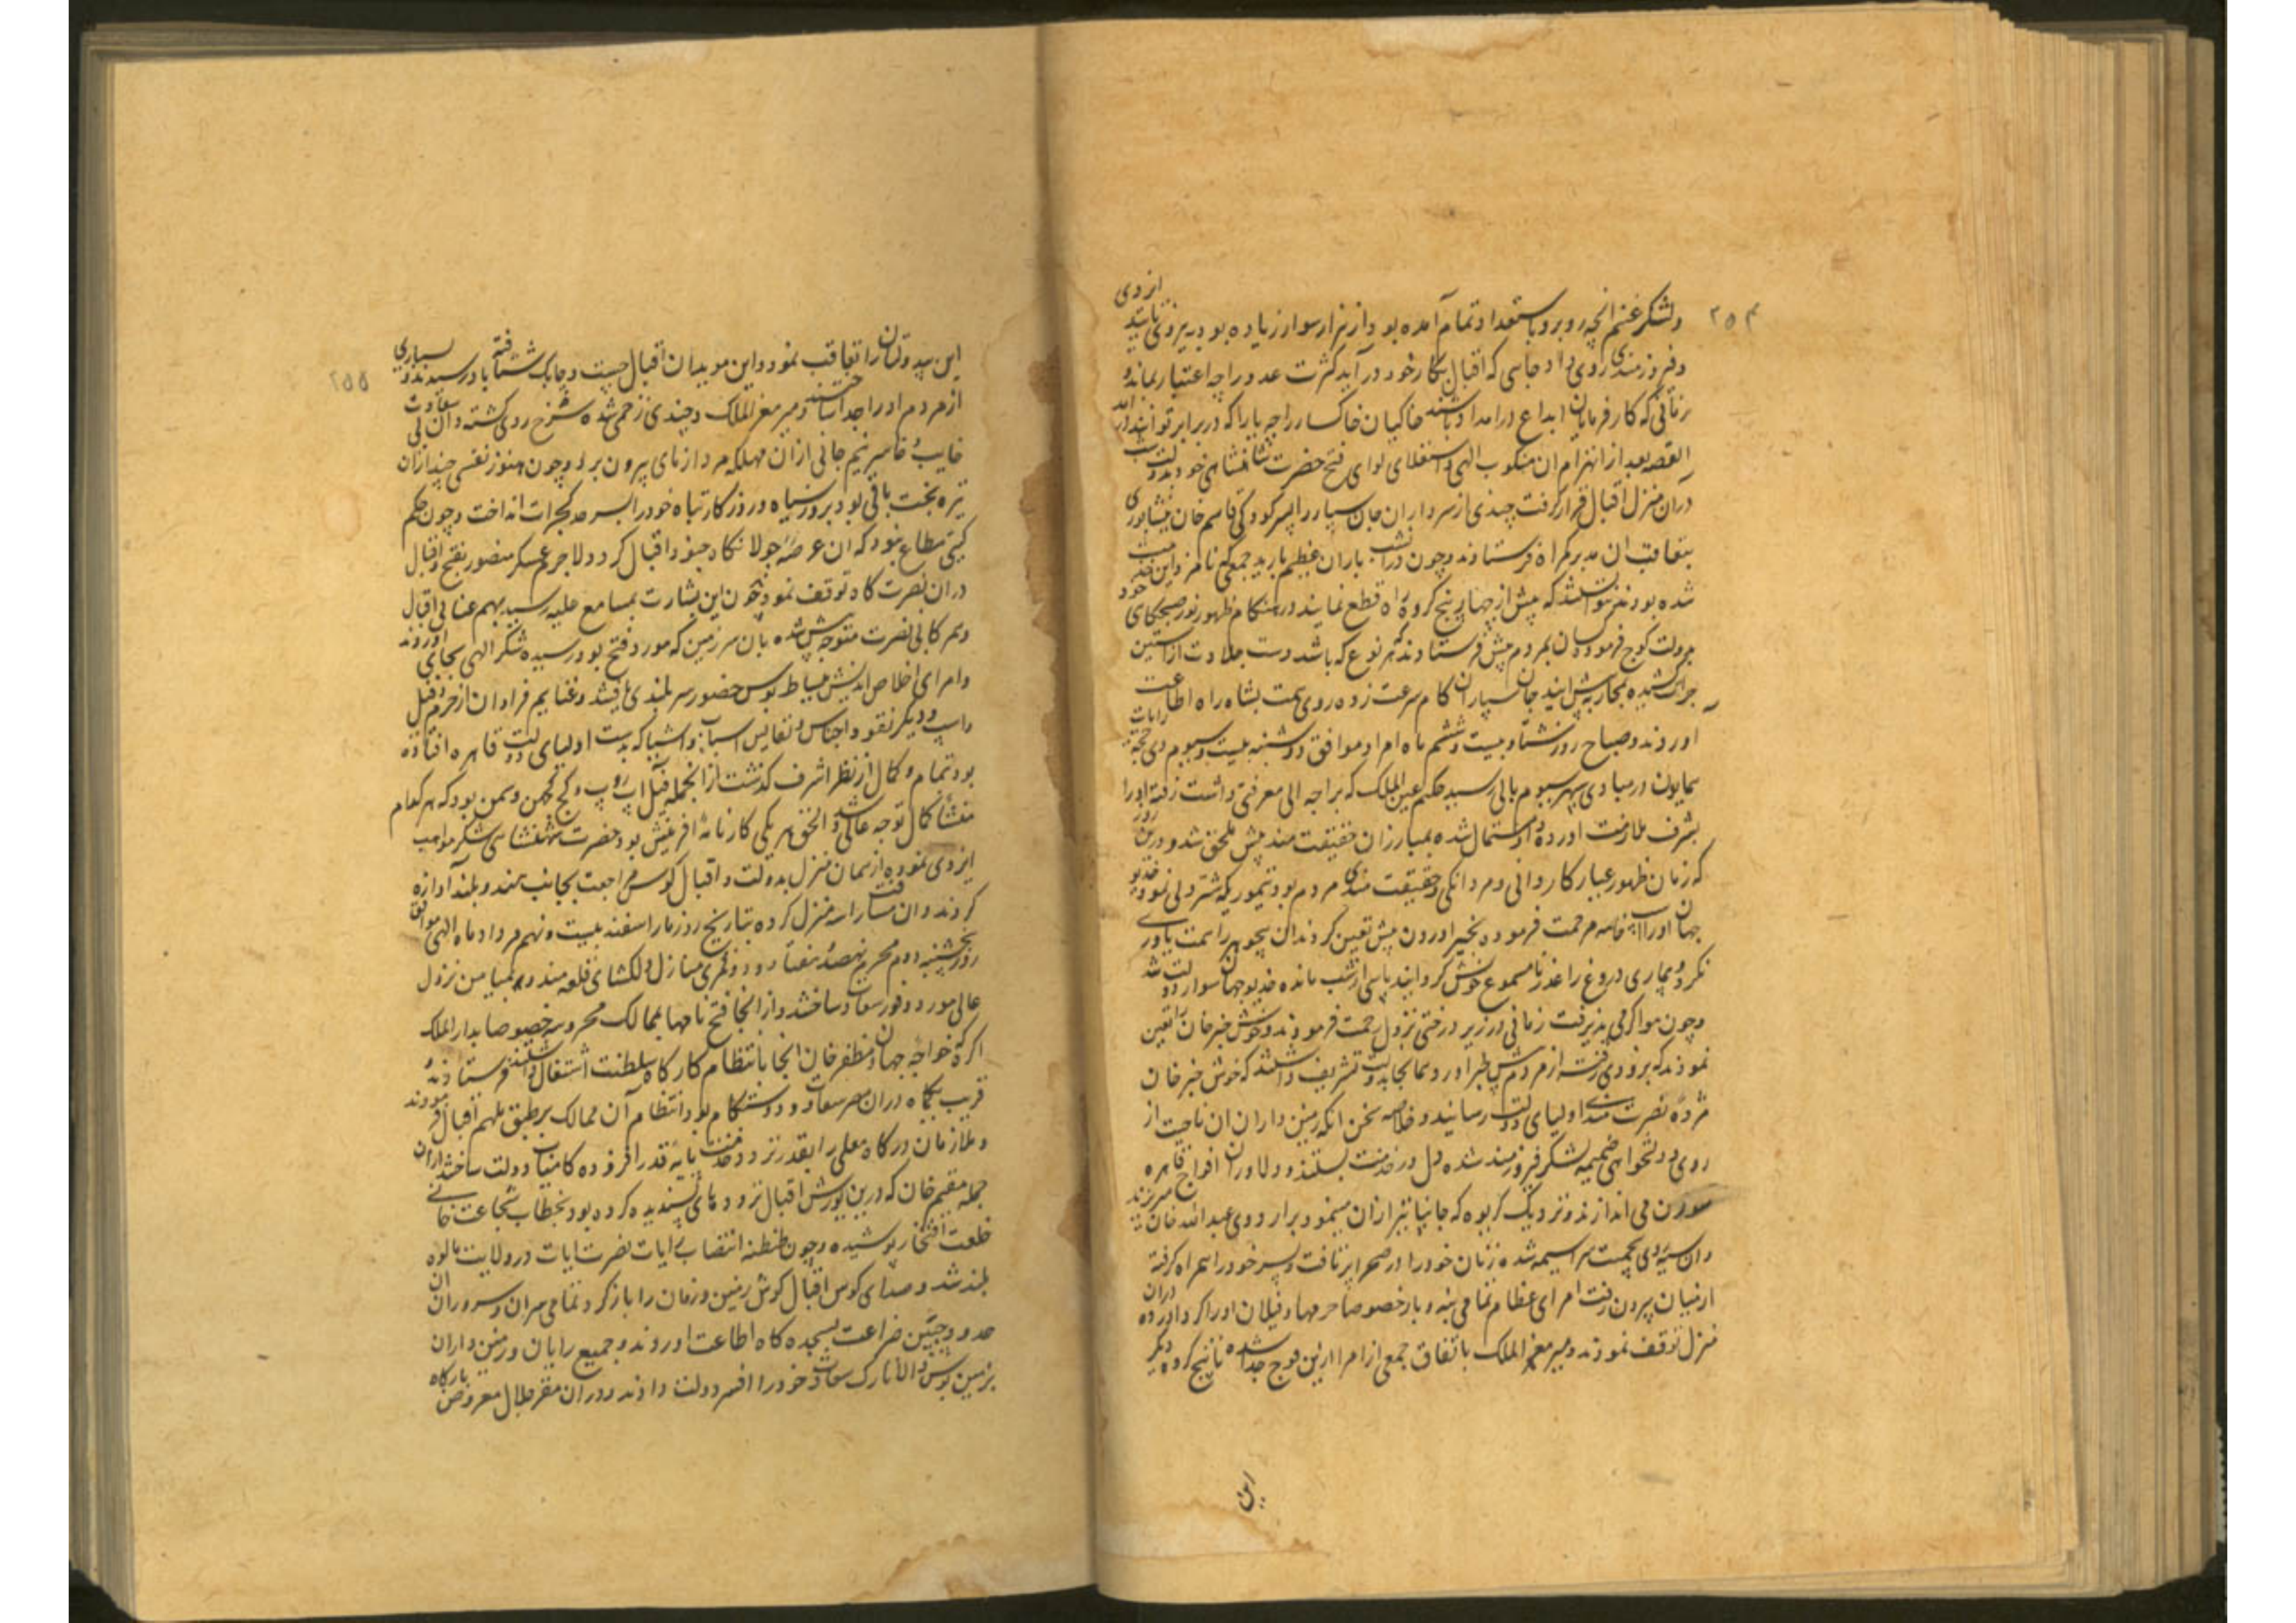 ۲۵۴
ولشکر غنیم انچه روبرو باستعداد تمام آمده بود از هزار سوار زیاده بود به نیروی تائید ایزدی
وفیروزمندی روی داد جائی که اقبال بکار خود در آید کثرت عدو را چه اعتبار بماند و
زمانی که کارفرمایان ابداع در امداد باشند خاکیان خاکسار را چه یارا که در برابر توانند آمد
القصه بعد از انهزام ان منکوب الهی و استعلای لوای فتح حضرت شاهنشاهی خود بدولت
دران منزل اقبال قرار گرفت چندی از سرداران جان سپار را بسرکردگی قاسم خان نیشاپوری
بتعاقب ان مدبر گمراه فرستادند وچون دران شب باران عظیم بارید جمعی که نامزد این خدمت
شده بودند نتوانستند که پیش از چهار پنج کروه راه قطع نمایند در هنگام ظهور نور صبحگاهی خود
بدولت کوچ فرمودند وبان مردم پیش فرستادند که بهر نوع که باشد دست جلادت از آستین
جرأت کشیده بمحاربه پیش ایند جان سپاران کام سرعت زده روی همت بشاه راه اطاعت
اوردند وصباح روز شتاد بیست وششم ماه امرداد موافق دوشنبه بیست وسیوم ذی حجه رایات
همایون در مبادی پهر سیوم بالی رسید حکیم عین الملک که براجه الی معرفتی داشت رفته او را
بشرف ملازمت اورده او مستمال شده بمبارزان حقیقت مند پیش ملحق شد و درین روز
که زمان ظهور عیار کاردانی ومردانگی وحقیقت مندی مردم بود تیمور یکه شتردلی نمود خدیو
جهان او را اسپ خاصه مرحمت فرموده بخبر اوردن پیش تعیین کردند ان بیجوهر را همت یاوری
نکرد وبیماری دروغ را عذر نامسموع خویش کردانید پاسی از شب مانده خدیو جهان سوار دولت شد
وچون هوا گرمی پذیرفت زمانی در زیر درختی نزول رحمت فرمودند وخوش خبرخان را تعین
نمودند که بزودی رفته از مردم پیش خبر اورد وهمانجا بدولت تشریف داشتند که خوش خبرخان
مژده نصرت مندی اولیای دولت رسانید وخلاصه سخن انکه زمین داران ان ناحیت از
روی دولتخواهی ضمیمه لشکر فیروزمند شده دل در خدمت بستند ودلاوران افواج قاهره
می اندازند ونزدیک گریوه که جانپانیر ازان مینمود بر اردوی عبدالله خان میریزند
وان سیه روی بی همت سراسیمه شده زنان خود را در صحرا برتافت وپسر خود را همراه گرفته
از میان بیرون رفت امرای عظام تمامی بنه وبار خصوصا حرمها وفیلان او را گرداورده دران
منزل توقف نمودند ومیر معز الملک باتفاق جمعی از امرا ازین فوج جدا شده تا پنج کروه دیگر
این
۲۵۵
این بیدولتان را تعاقب نمود واین مویدان اقبال چست وچابک شتافته باو رسیدند وبسیاری
از مردم او را جدا ساختند ومیر معز الملک وچندی زخمی شده سرخ روی گشتند وان بی سعادت
خایب وخاسر نیم جانی ازان مهلکه مرد ازمای بیرون برد وچون هنوز نفسی چند ازان
تیره بخت باقی بود بروز سیاه وروزکار تباه خود را بسرحد گجرات انداخت وچون حکم
گیتی مطاع نبود که ان عرصه جولانگاه جنود اقبال گردد لاجرم عسکر منصور بفتح واقبال
دران نصرت گاه توقف نمود وچون این بشارت بمسامع علیه رسید بهم عنانی اقبال
وهمرکابی نصرت متوجه پیش شده بان سرزمین که مورد فتح بود رسیده شکر الهی بجای اوردند
وامرای اخلاص اندیش ببساط بوس حضور سربلندی یافتند وغنایم فراوان از حرم وفیل
واسپ ودیگر نقود واجناس ونفایس اسباب واشیا که بدست اولیای دولت قاهره افتاده
بود تمام وکمال از نظر اشرف گذشت از انجمله فیل اپ روپ وگج گجهن وسمن بود که هر کدام
منشأ کمال توجه عالی شد والحق هر یکی کارنامه افرینش بود حضرت شهنشاهی شکر مواهب
ایزدی نموده از همان منزل بدولت واقبال کوس مراجعت بجانب مندو بلند اوازه
کردند وان مسافت را سه منزل کرده بتاریخ روز ماراسفند بیست ونهم مرداد ماه الهی موافق
روز پنجشنبه دوم محرم نهصد وهفتاد ودو قمری منازل دلکشای قلعه مندو بمیامن نزول
عالی مورد وفور سعادت ساختند واز انجا فتح نامها بممالک محروسه خصوصا بدار الملک
اگره که خواجه جهان ومظفرخان انجا بانتظام کارگاه سلطنت اشتغال داشتند فرستادند و
قریب یکماه دران مصر سعادت ودوستکام بود انتظام آن ممالک برطبق ملهم اقبال فرمودند
وملازمان درگاه معلی را بقدر تردد وخدمت پایه قدر افزوده کامیاب دولت ساختند ازان
جمله مقیم خان که درین یورش اقبال ترددهای پسندیده کرده بود بخطاب شجاعت خانی
خلعت افتخار پوشیده وچون طنطنه انتصاب رایات نصرت ایات در ولایت مالوه
بلند شد وصدای کوس اقبال گوش زمین وزمان را باز کرد تمامی سران وسروران ان
حدود جبین ضراعت بسجده گاه اطاعت اوردند وجمیع رایان وزمین داران
بزمین بوس والا تارک سعادت خود را افسر دولت دادند ودران مقر جلال معروض بارگاه